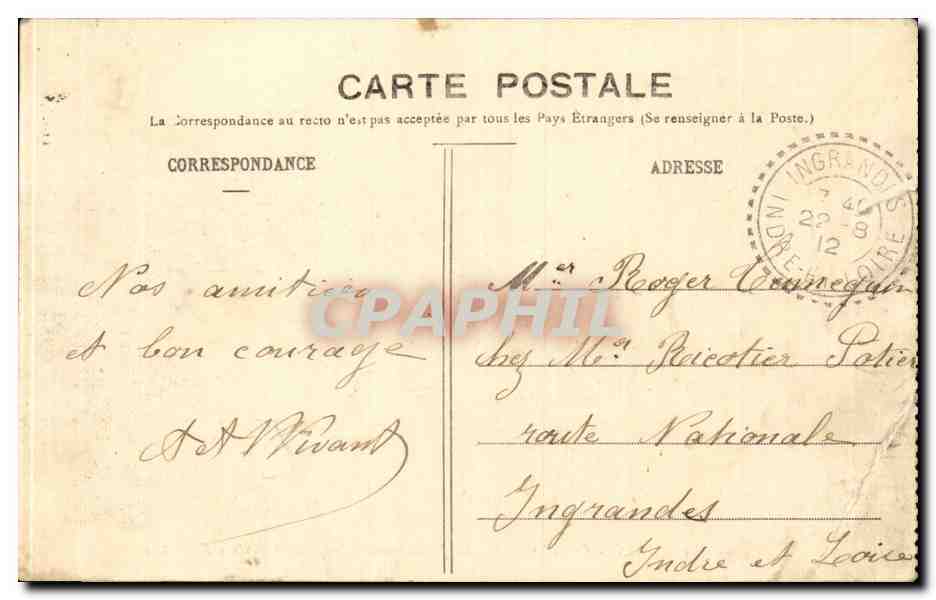 CARTE POSTALE
La Correspondance au recto n'est pas acceptée par tous les Pays Étrangers (Se renseigner à la Poste.)
CORRESPONDANCE
Nos amitiés
et bon courage
Vivant
ADRESSE
INGRANDES
7 40
22 -8
12
INDRE-ET-LOIRE
Mr Roger Tennequin
chez Mr Ricotier Potier
route Nationale
Ingrandes
Indre et Loire
CPAPHIL